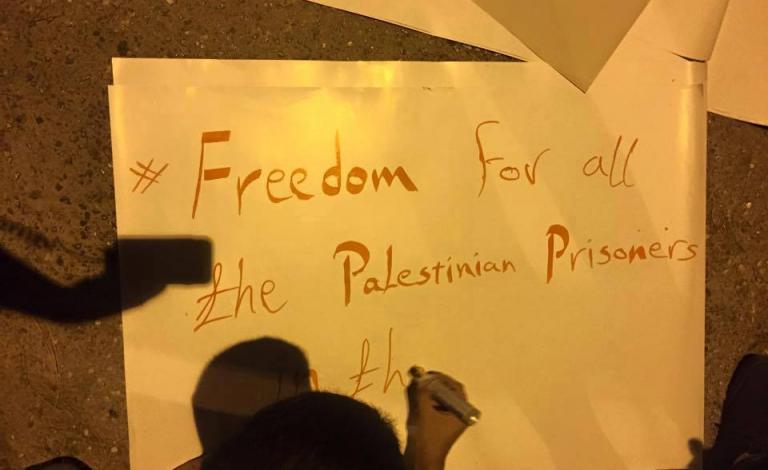 # Freedom For all
the Palestinian Prisoners
in th